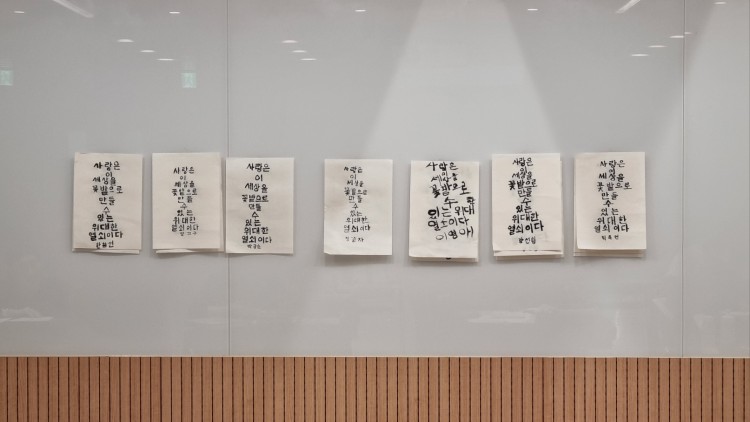 사랑은
이
세상을
꽃밭으로
만들
수
있는
위대한
열쇠이다
사랑은
이
세상을
꽃밭으로
만들
수
있는
위대한
열쇠이다
사랑은
이
세상을
꽃밭으로
만들
수
있는
위대한
열쇠이다
사랑은
이
세상을
꽃밭으로
만들
수
있는
위대한
열쇠이다
사랑은
이
세상을
꽃밭으로
수
위대한
열쇠이다
이영애
사랑은
이
세상을
꽃밭으로
만들
수
있는
위대한
열쇠이다
사랑은
이
세상을
꽃밭으로
만들
수
있는
위대한
열쇠이다